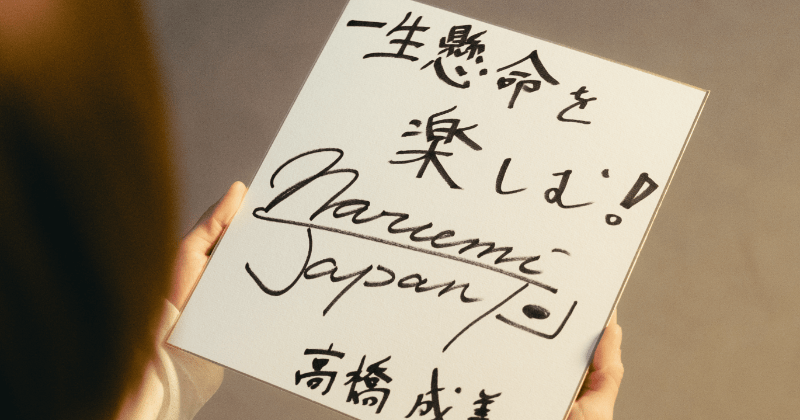 一生懸命を
楽しむ!
Narumi
Japan
高橋成美